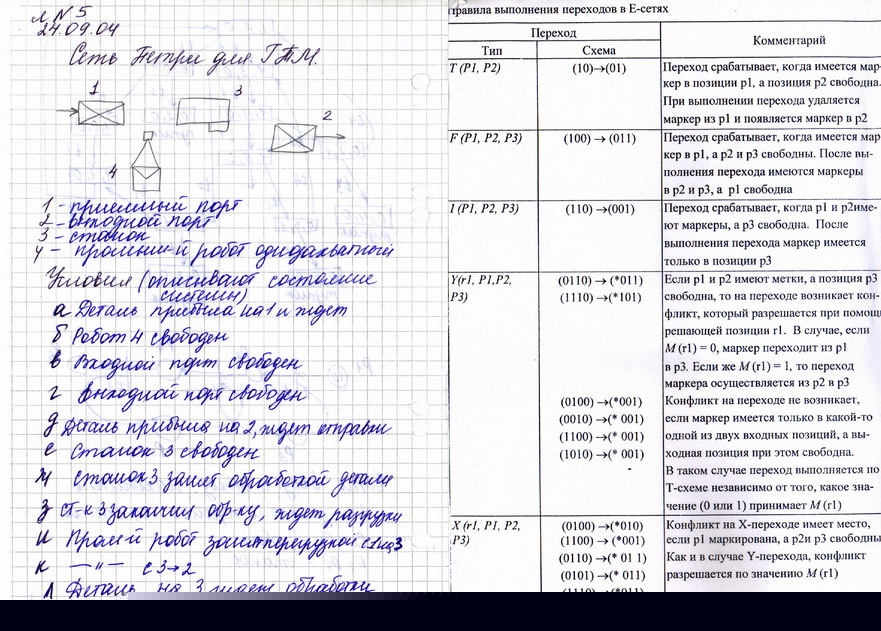 л N 5
24.09.04
Сеть Петри для ГПМ.
1
3
2
4
1 - приемный порт
2 - выходной порт
3 - станок
4 - промышл-й робот однозахватный
Условия (описывают состояние
системы)
а Деталь прибыла на 1 и ждет
б Робот 4 свободен
в Входной порт свободен
г Выходной порт свободен
д Деталь прибыла на 2, ждет отправки
е Станок 3 свободен
ж Станок 3 занят обработкой детали
з Ст-к 3 закончил обр-ку, ждет разгрузки
и Пром-й робот занят перегрузкой с 1 на 3
к — " — с 3→2
л Деталь на 3 ждет обработки
правила выполнения переходов в Е-сетях
Переход
Комментарий
Тип
Схема
T (P1, P2)
(10)→(01)
Переход срабатывает, когда имеется мар-
кер в позиции p1, а позиция p2 свободна.
При выполнении перехода удаляется
маркер из p1 и появляется маркер в p2
F (P1, P2, P3)
(100) → (011)
Переход срабатывает, когда имеется мар
кер в p1, а p2 и p3 свободны. После вы-
полнения перехода имеются маркеры
в p2 и p3, а p1 свободна
I (P1, P2, P3)
(110) →(001)
Переход срабатывает, когда p1 и p2име-
ют маркеры, а p3 свободна. После
выполнения перехода маркер имеется
только в позиции p3
Y(r1, P1,P2,
P3)
(0110) → (*011)
(1110) →(*101)
Если p1 и p2 имеют метки, а позиция p3
свободна, то на переходе возникает кон-
фликт, который разрешается при помощи
решающей позиции r1. В случае, если
M (r1) = 0, маркер переходит из p1
в p3. Если же M (r1) = 1, то переход
маркера осуществляется из p2 в p3
(0100) →(*001)
(0010) →(* 001)
(1100) →(* 001)
(1010) →(* 001)
Конфликт на переходе не возникает,
если маркер имеется только в какой-то
одной из двух входных позиций, а вы-
ходная позиция при этом свободна.
В таком случае переход выполняется по
Т-схеме независимо от того, какое зна-
чение (0 или 1) принимает M (r1)
X (r1, P1, P2,
P3)
(0100) →(*010)
(1100) →(*001)
(0110) →(* 01 1)
(0101) →(* 011)
Конфликт на X-переходе имеет место,
если p1 маркирована, а p2и p3 свободны
Как и в случае Y-перехода, конфликт
разрешается по значению M (r1)